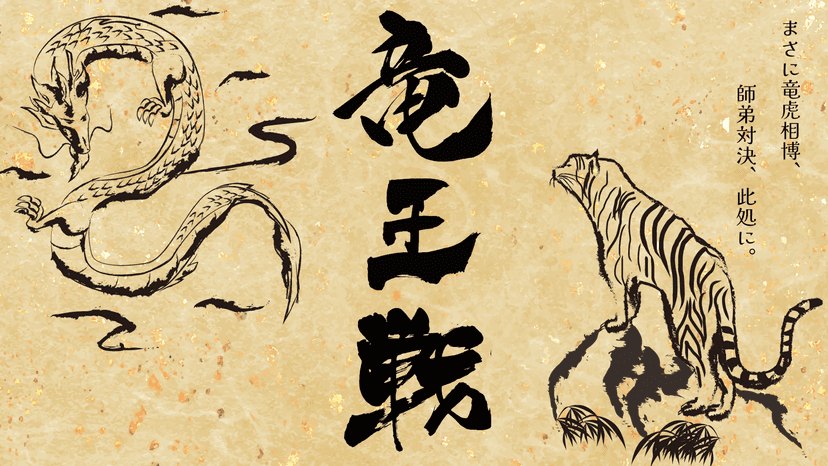 まさに竜虎相博、
師弟対決、此処に。
竜王戦